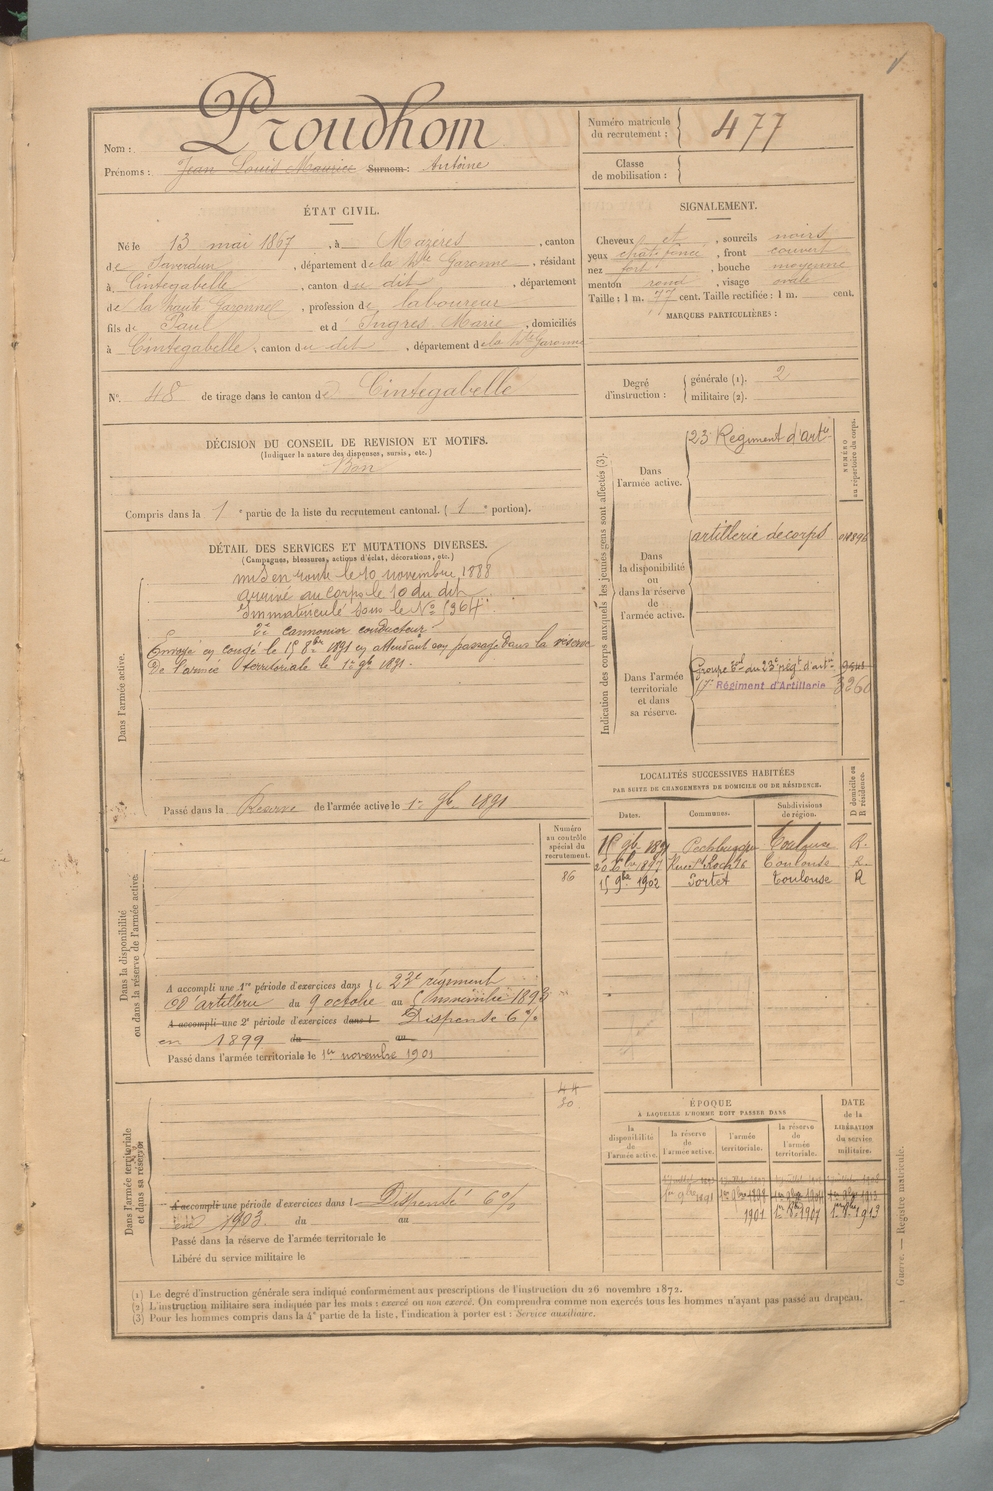 Nom : Proudhom
Prénoms : Jean Louis Maurice Surnom : Antoine
Numéro matricule du recrutement : 477
Classe de mobilisation :
ÉTAT CIVIL.
Né le 13 mai 1867, à Mazères, canton
de Saverdun, département de la Hte Garonne, résidant
à Cintegabelle, canton du dit, département
de la haute Garonne, profession de laboureur
fils de Paul et d'Ingres Marie, domiciliés
à Cintegabelle, canton du dit, département de la Hte Garonne
SIGNALEMENT.
Cheveux et, sourcils noirs
yeux chât. foncé, front couvert
nez fort, bouche moyenne
menton rond, visage ovale
Taille : 1 m. 77 cent. Taille rectifiée : 1 m. cent.
MARQUES PARTICULIÈRES :
N° 48 de tirage dans le canton de Cintegabelle
Degré d'instruction : générale (1). 2
militaire (2).
DÉCISION DU CONSEIL DE REVISION ET MOTIFS.
(Indiquer la nature des dispenses, sursis, etc.)
Bon
Compris dans la 1e partie de la liste du recrutement cantonal. (1e portion).
DÉTAIL DES SERVICES ET MUTATIONS DIVERSES.
(Campagnes, blessures, actions d'éclat, décorations, etc.)
Dans l'armée active.
mis en route le 10 novembre 1888
arrivé au corps le 10 du dit
Immatriculé sous le No 1964
2e cannonier conducteur
Envoyé en congé le 15 8bre 1891 en attendant son passage dans la réserve
de l'armée territoriale le 1er 9bre 1891.
Passé dans la Réserve de l'armée active le 1er 9b. 1891
Indication des corps auxquels les jeunes gens sont affectés (3).
NUMÉRO au répertoire du corps.
Dans l'armée active.
23 Régiment d'artie
Dans la disponibilité ou dans la réserve de l'armée active.
artillerie de corps
Dans l'armée territoriale et dans sa réserve.
Groupe tal du 23e régt d'artie
17e Régiment d'Artillerie 3260
LOCALITÉS SUCCESSIVES HABITÉES
PAR SUITE DE CHANGEMENTS DE DOMICILE OU DE RÉSIDENCE.
Dates. Communes. Subdivisions de région. D domicile ou R résidence.
15 9b. 1891 Pechbusque Toulouse R.
1897 Rue St Roch 76 Toulouse R.
15 9bre 1902 Portet Toulouse R
Numéro au contrôle spécial du recrutement.
86
Dans la disponibilité ou dans la réserve de l'armée active.
A accompli une 1re période d'exercices dans le 23e régiment
d'artillerie du 9 octobre au 5 novembre 1893
A accompli une 2e période d'exercices dans l Dispensé 6 %
en 1899 du au
Passé dans l'armée territoriale le 1er novembre 1901
44
50
Dans l'armée territoriale et dans sa réserve.
A accompli une période d'exercices dans l Dispensé 6 %
en 1903. du au
Passé dans la réserve de l'armée territoriale le
Libéré du service militaire le
ÉPOQUE
À LAQUELLE L'HOMME DOIT PASSER DANS
la disponibilité de l'armée active.
la réserve de l'armée active.
l'armée territoriale.
la réserve de l'armée territoriale.
DATE de la LIBÉRATION du service militaire.
1er 9bre 1891 1er 9bre 1898 1er 9bre 1904 1er 9bre 1913
1901 1er 8bre 1907 1er 8bre 1913
(1) Le degré d'instruction générale sera indiqué conformément aux prescriptions de l'instruction du 26 novembre 1872.
(2) L'instruction militaire sera indiquée par les mots : exercé ou non exercé. On comprendra comme non exercés tous les hommes n'ayant pas passé au drapeau.
(3) Pour les hommes compris dans la 4e partie de la liste, l'indication à porter est : Service auxiliaire.
Guerre. — Registre matricule.